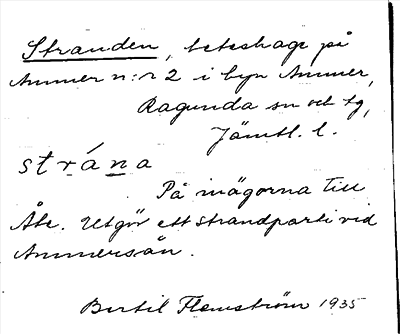 Stranden, beteshage på
Ammer n:r 2 i byn Ammer,
Ragunda sn och tg,
Jämtl. l.
strána
På inägorna till
Åke. Utgör ett strandparti vid
Ammersån.
Bertil Flemström 1935